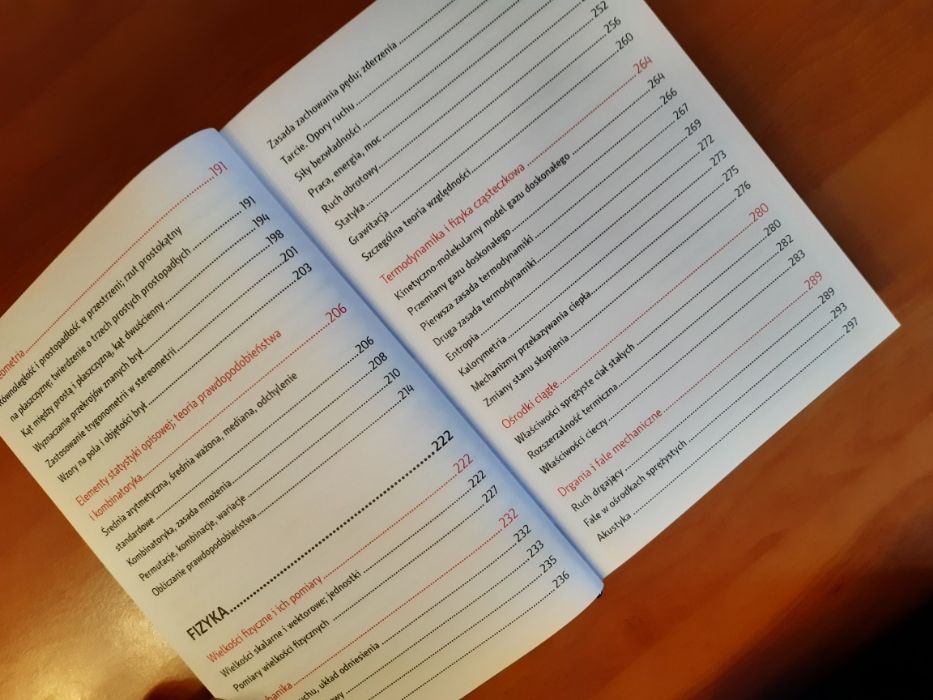 ometria 191
ównoległość i prostopadłość w przestrzeni; rzut prostokątny
na płaszczyznę; twierdzenie o trzech prostych prostopadłych 191
Kąt między prostą i płaszczyzną, kąt dwuścienny 194
Wyznaczanie przekrojów znanych brył 198
Zastosowanie trygonometrii w stereometrii 201
Wzory na pola i objętości brył 203
Elementy statystyki opisowej; teoria prawdopodobieństwa
i kombinatoryka 206
Średnia arytmetyczna, średnia ważona, mediana, odchylenie
standardowe 206
Kombinatoryka, zasada mnożenia 208
Permutacje, kombinacje, wariacje 210
Obliczanie prawdopodobieństwa 214
FIZYKA 222
Wielkości fizyczne i ich pomiary 222
Wielkości skalarne i wektorowe; jednostki 222
Pomiary wielkości fizycznych 227
hanika 232
uchu, układ odniesienia 232
owy 233
235
236
Zasada zachowania pędu; zderzenia
Tarcie. Opory ruchu
Siły bezwładności
Praca, energia, moc
Ruch obrotowy
Statyka 252
Grawitacja 256
Szczególna teoria względności 260
Termodynamika i fizyka cząsteczkowa 264
Kinetyczno-molekularny model gazu doskonałego 264
Przemiany gazu doskonałego 266
Pierwsza zasada termodynamiki 267
Druga zasada termodynamiki 269
Entropia 272
Kalorymetria 273
Mechanizmy przekazywania ciepła 275
Zmiany stanu skupienia 276
Ośrodki ciągłe 280
Właściwości sprężyste ciał stałych 280
Rozszerzalność termiczna 282
Właściwości cieczy 283
Drgania i fale mechaniczne 289
Ruch drgający 289
Fale w ośrodkach sprężystych 293
Akustyka 297